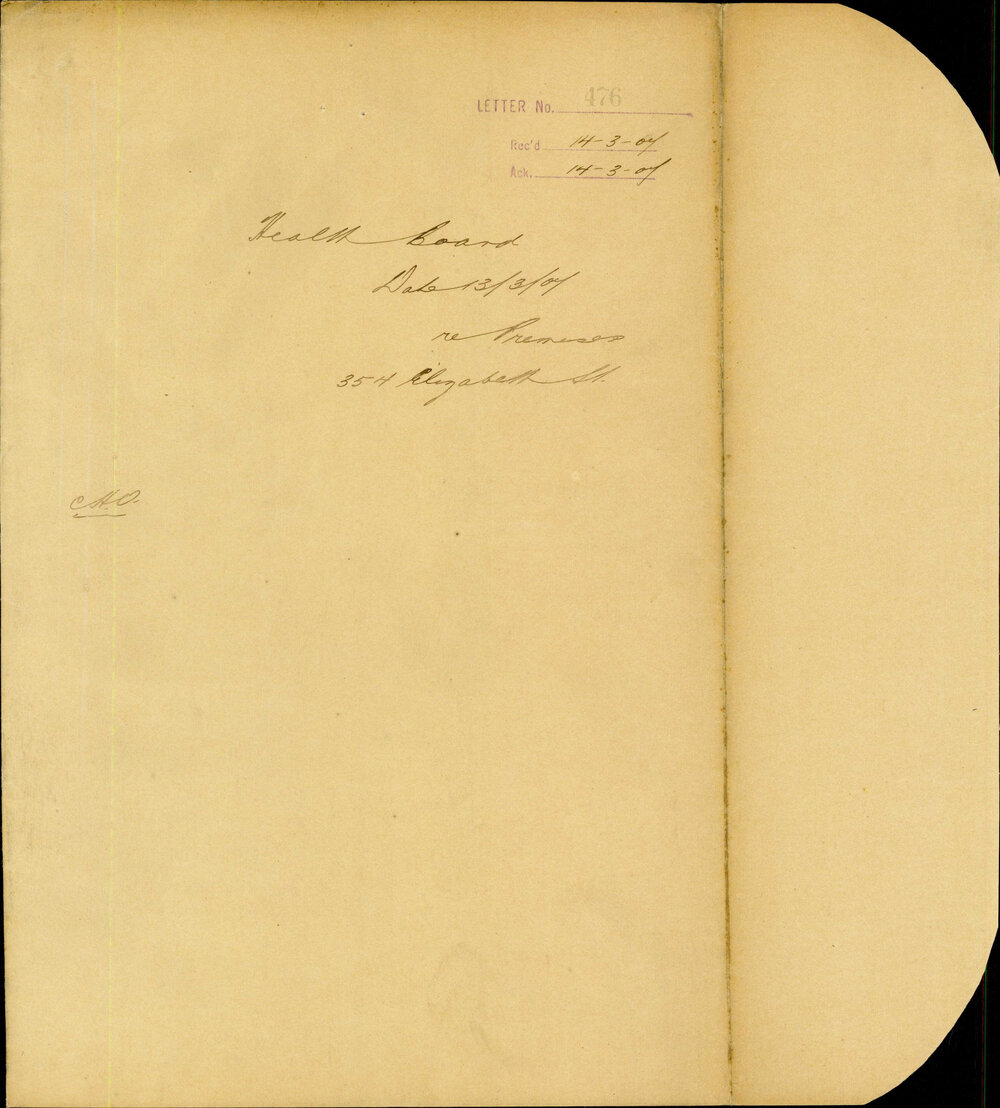 LETTER No. 476
Rec'd 14-3-07
Ack. 14-3-07
Health Board
Date 13/3/07
re Premises
354 Elizabeth St.
C.H.O.